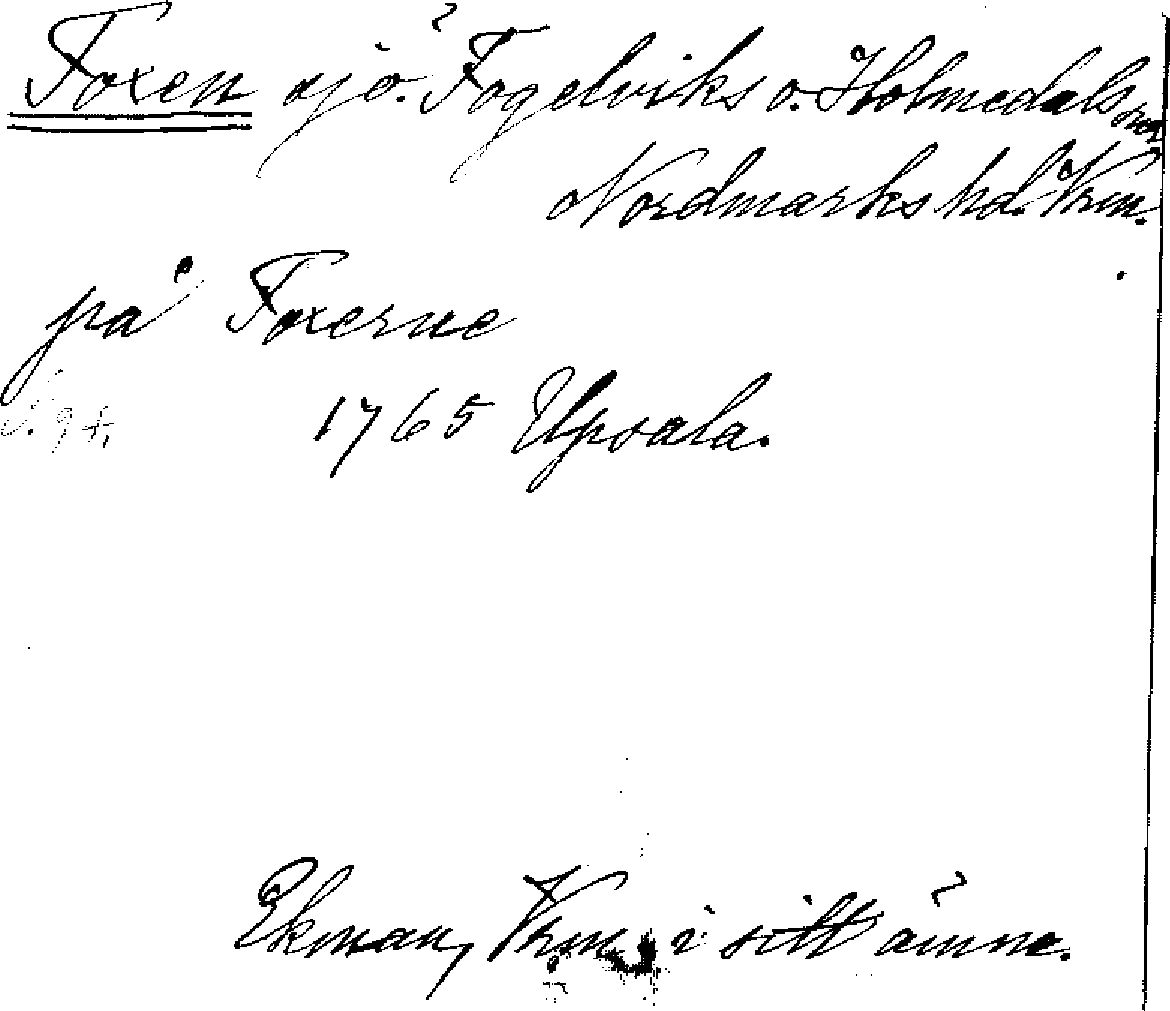 Foxen sjö. Fogelviks o. Holmedals snr
Nordmarks hd. Vrm.
på Foxerne
s. 94.
1765 Upsala.
Ekman, Vrm. i sitt ämne.